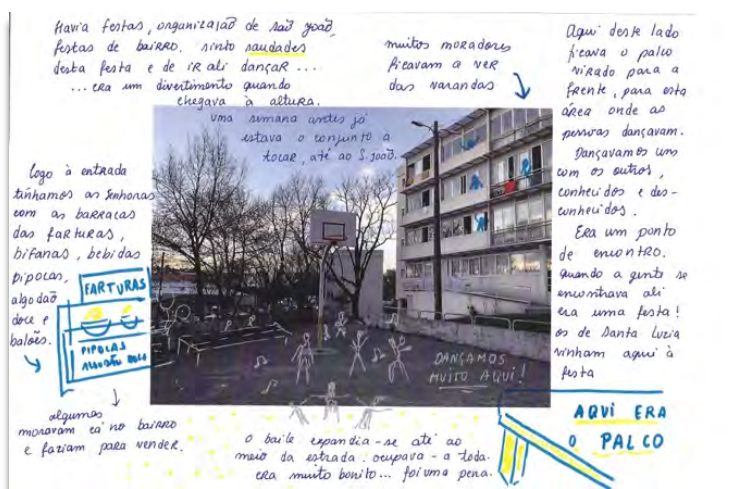 Havia festas, organização de São João,
festas de bairro. sinto saudades
desta festa e de ir ali dançar...
... era um divertimento quando
chegava à altura.
uma semana antes já
estava o conjunto a
tocar, até ao S. João.
muitos moradores
ficavam a ver
das varandas
Aqui deste lado
ficava o palco
virado para a
frente, para esta
área onde as
pessoas dançavam.
Dançavamos uns
com os outros,
conhecidos e des-
conhecidos.
Era um ponto
de encontro.
quando a gente se
encontrava ali
era uma festa!
os de Santa Luzia
vinham aqui à
festa
logo à entrada
tinhamos as senhoras
com as barracas
das farturas,
bifanas, bebidas
pipocas,
algodão
doce e
balões.
FARTURAS
PIPOCAS
ALGODÃO DOCE
algumas
moravam cá no bairro
e faziam para vender.
DANÇAMOS
MUITO AQUI!
o baile expandia-se até ao
meio da estrada. ocupava-a toda.
era muito bonito... foi uma pena.
AQUI ERA
O PALCO